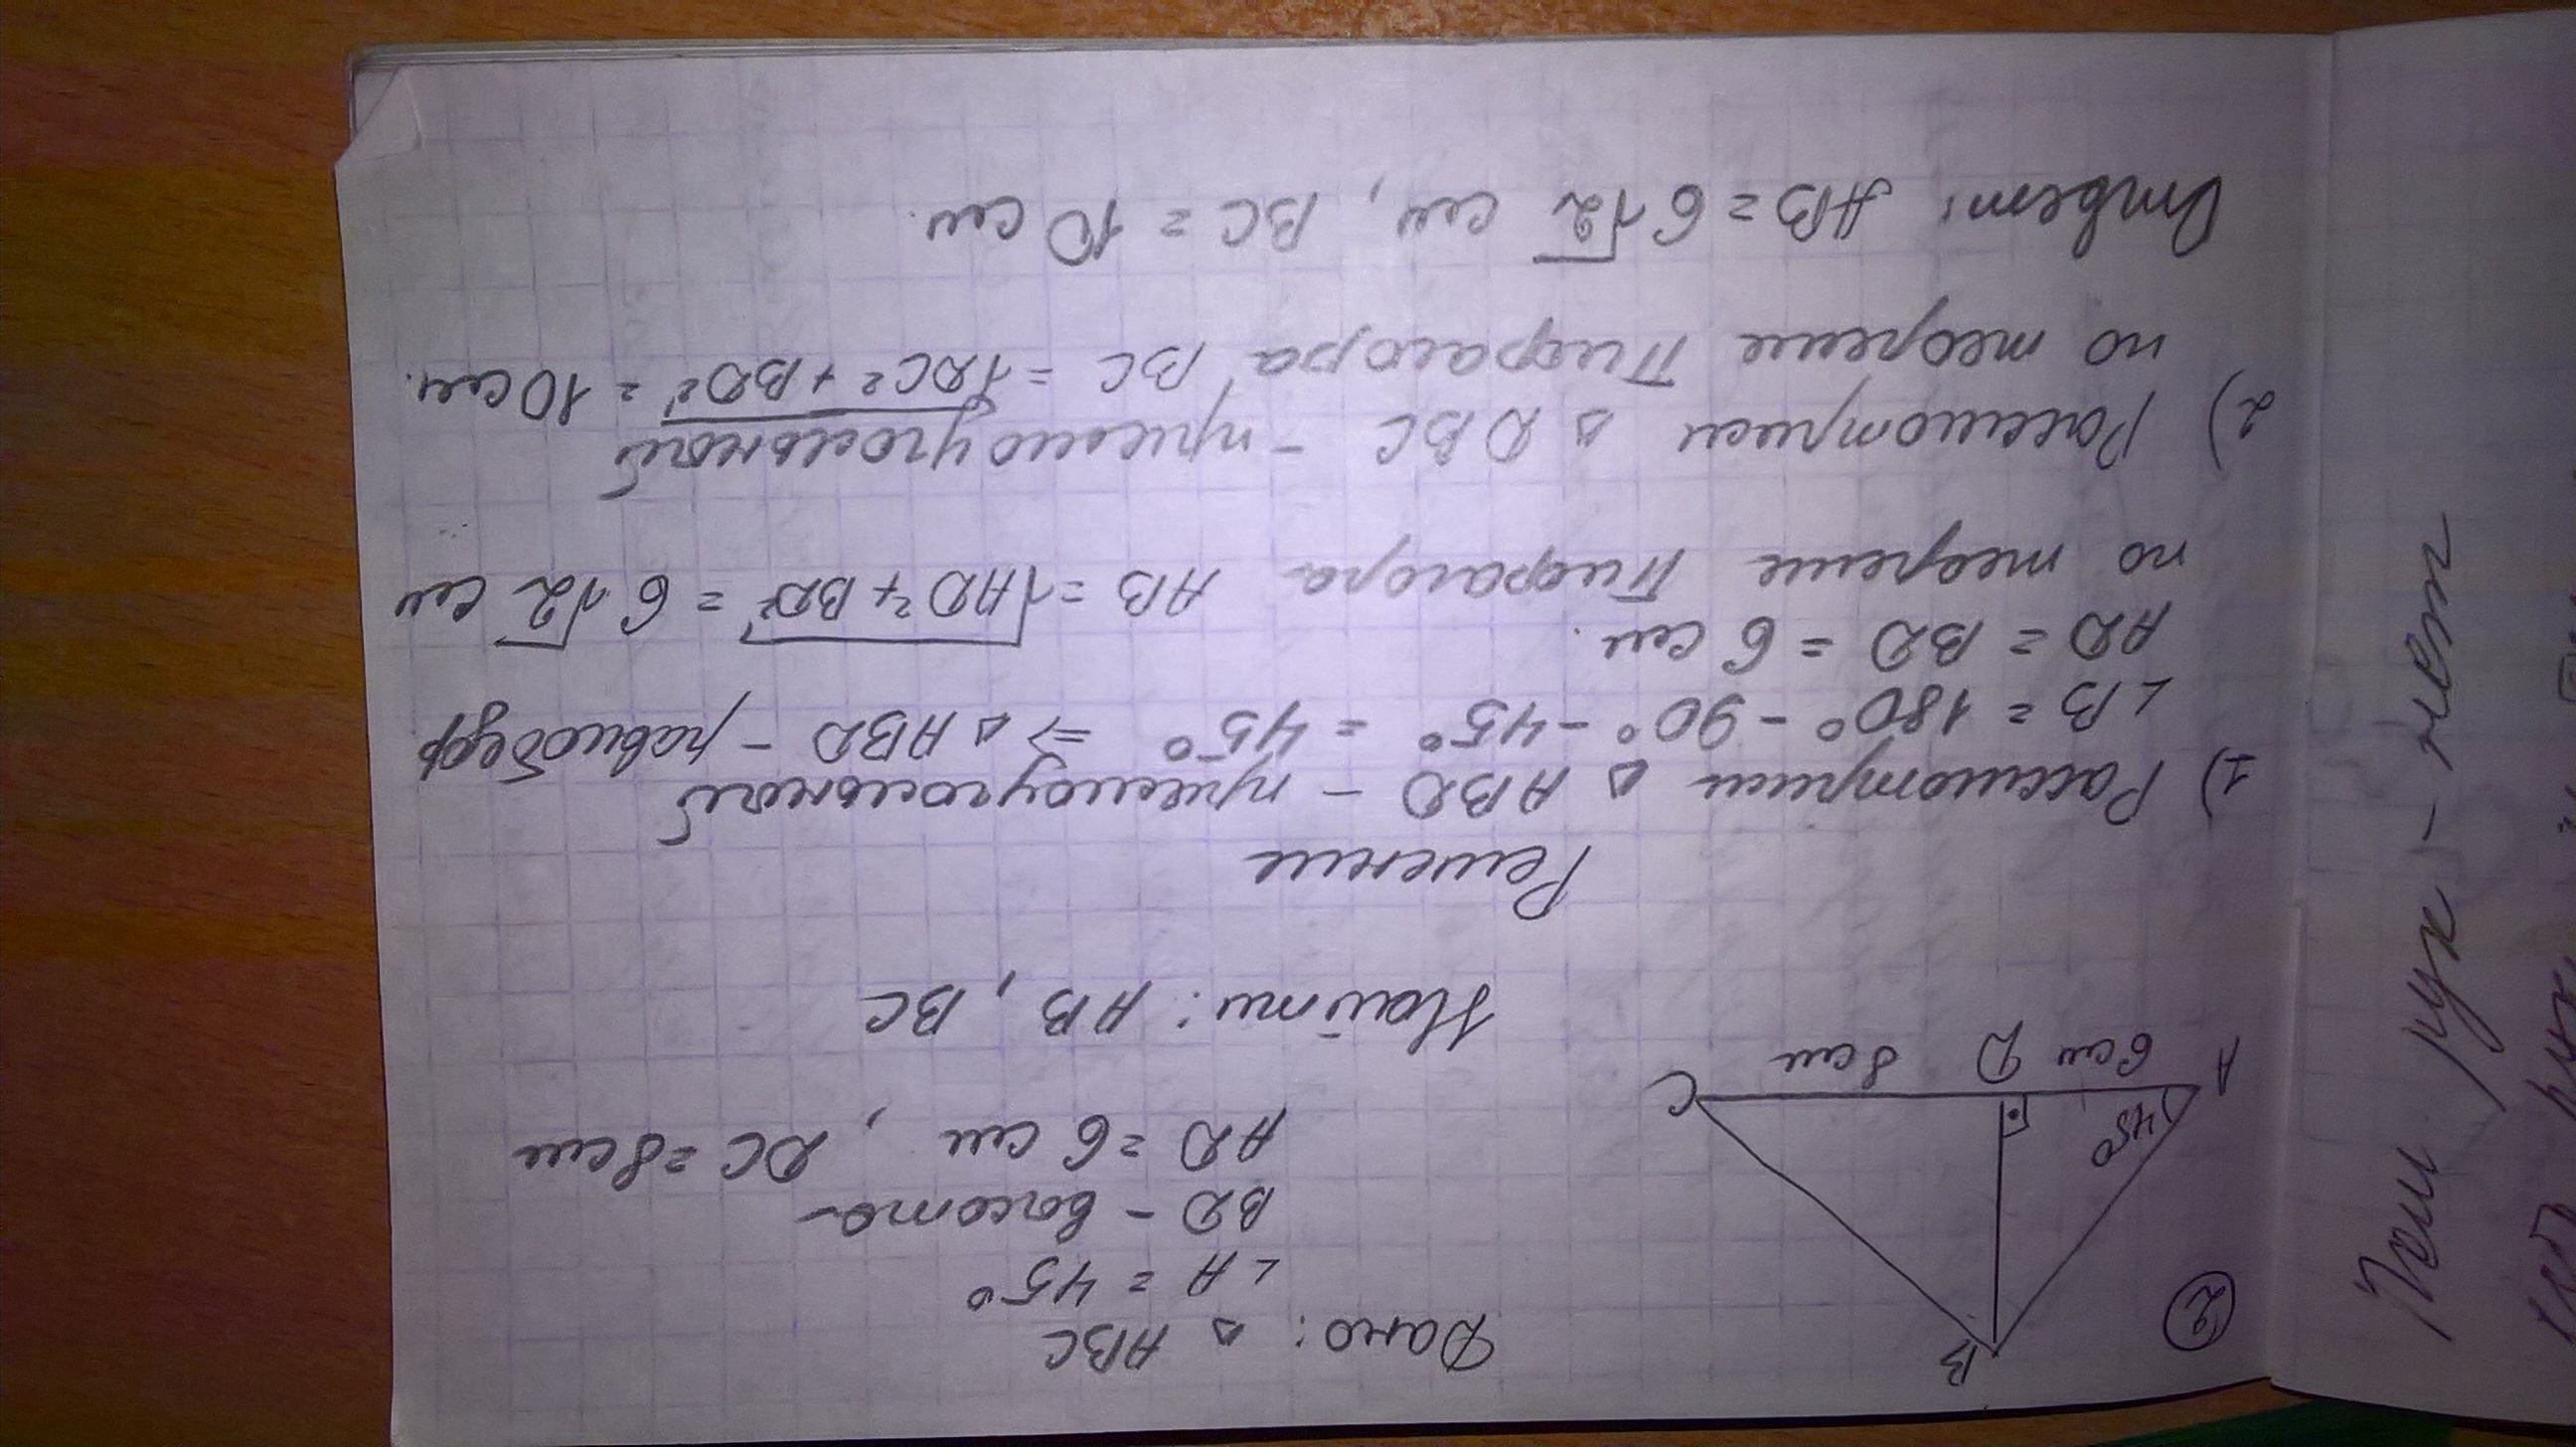 ②
B
45°
A
6 см
D
8 см
C
Дано: △ ABC
∠A = 45°
BD - высота
AD = 6 см, DC = 8 см
Найти: AB, BC
Решение
1) Рассмотрим △ ABD - прямоугольный
∠B = 180° - 90° - 45° = 45° ⇒ △ ABD - равнобедр
AD = BD = 6 см.
по теореме Пифагора AB = √AD² + BD² = 6√2 см
2) Рассмотрим △ DBC - прямоугольный
по теореме Пифагора BC = √DC² + BD² = 10 см.
Ответ: AB = 6√2 см, BC = 10 см.
рук - нет